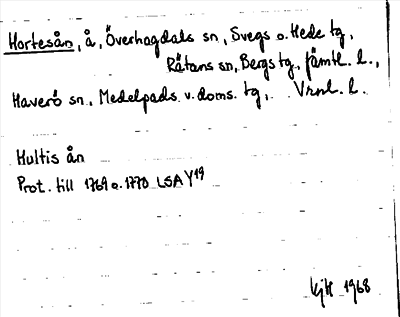 Hortesån, å, Överhogdals sn, Svegs o. Hede tg,
Rätans sn, Bergs tg, Jämtl. l.,
Haverö sn, Medelpads v. doms. tg, Vrnl. l.
Hultis ån
Prot. till 1769 o. 1770 LSA Y19
KjH 1968